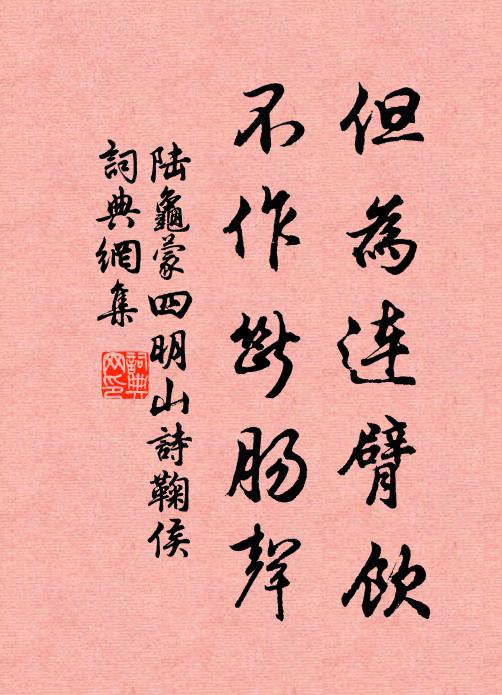 但為連臂飲
不作斷腸聲
陆龜蒙四明山詩鞠侯
詞典網集
詞典网印